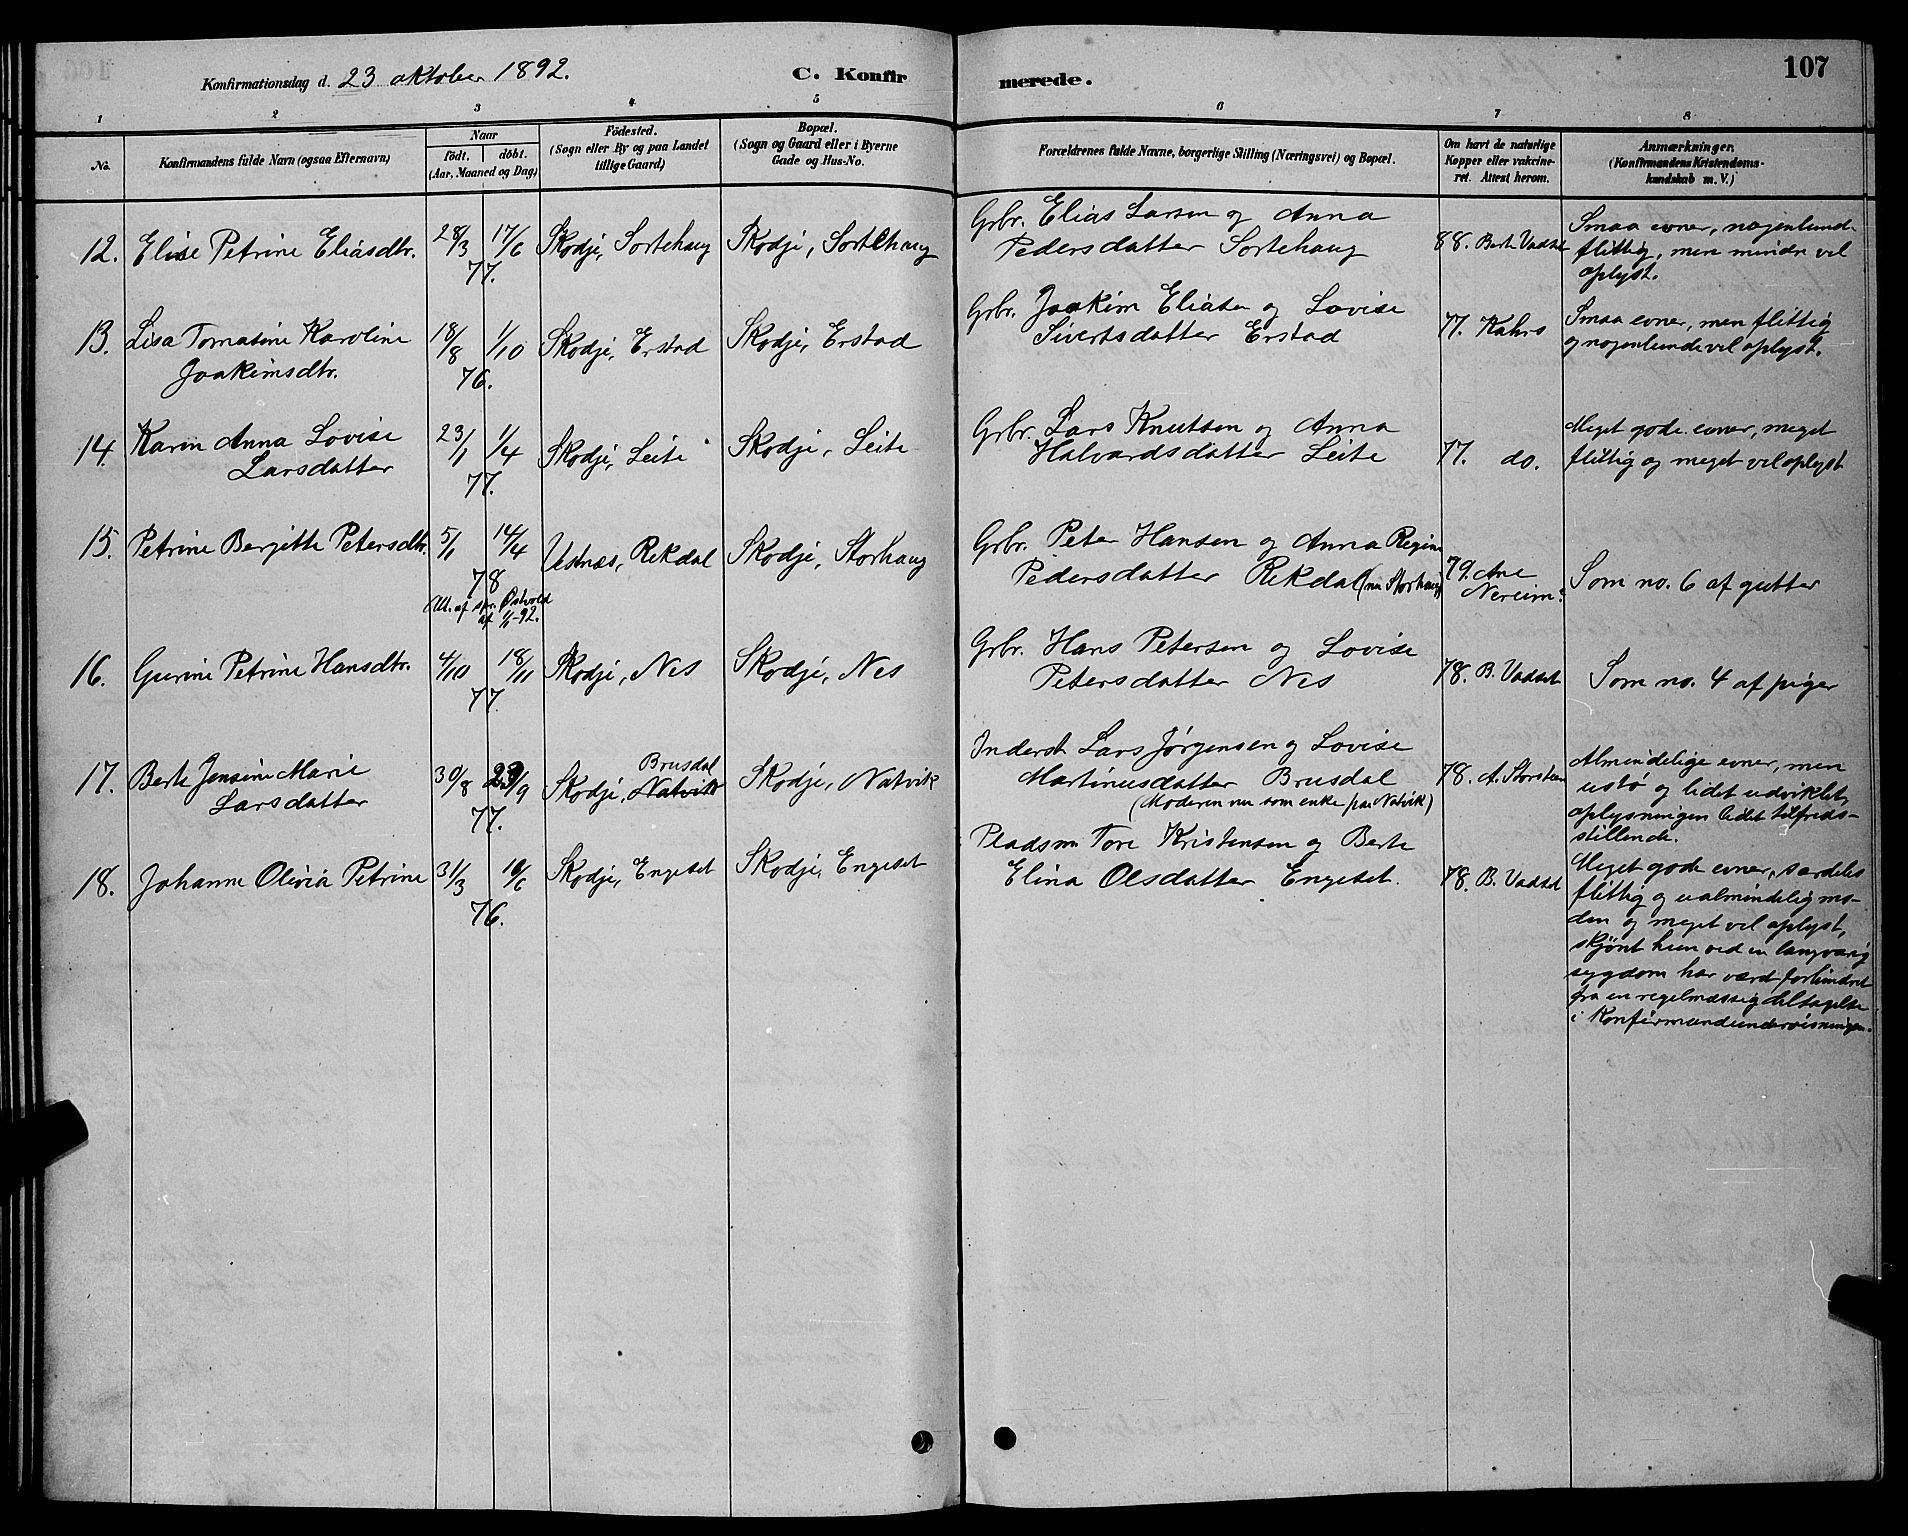 Konfirmationsdag d. 23 oktober 1892.
C. Konfirmerede.
107
1 2 3 4 5 6 7 8
No.
Konfirmandens fulde Navn (ogsaa Efternavn)
Naar
födt. döbt.
(Aar, Maaned og Dag)
Födested.
(Sogn eller By og paa Landet
tillige Gaard)
Bopæl.
(Sogn og Gaard eller i Byerne
Gade og Hus-No.
Forældrenes fulde Navne, borgerlige Stilling (Næringsvei) og Bopæl.
Om havt de naturlige
Kopper eller vakcine-
ret. Attest herom.
Anmærkninger.
(Konfirmandens Kristendoms-
kundskab m. V.)
12. Elise Petrine Eliasdtr.
28/3 17/6
77.
Skodje, Sortehaug
Skodje, Sortehaug
Gbr. Elias Larsen og Anna
Pedersdatter Sortehaug
88. Berte Vadset
Smaa evner, nogenlunde
flittig, men mindre vel
oplyst.
13. Lisa Tomasine Karoline
Joakimsdtr.
18/8 1/10
76.
Skodje, Erstad
Skodje, Erstad
Gbr. Joakim Eliasen og Lovise
Sivertsdatter Erstad
77. Kahrs
Smaa evner, men flittig
og nogenlunde vel oplyst.
14. Karin Anna Lovise
Larsdatter
23/1 1/4
77.
Skodje, Leite
Skodje, Leite
Gbr. Lars Knutsen og Anna
Halvardsdatter Leite
77. do.
Meget gode evner, meget
flittig og meget vel oplyst
15. Petrine Bergitte Petersdtr.
5/1 14/4
78
Att. af spr. Østvold
af 1/1-92.
Vestnæs, Rekdal
Skodje, Storhaug
Gbr. Peter Hansen og Anna Regine
Pedersdatter Rekdal (nu Storhaug)
79. Ane
Nereim
Som no. 6 af gutter
16. Gurine Petrine Hansdtr.
4/10 18/11
77.
Skodje, Nes
Skodje, Nes
Gbr. Hans Petersen og Lovise
Petersdatter Nes
78. B. Vadset
Som no. 4 af piger
17. Berte Jensine Marie
Larsdatter
30/8 23/9
77.
Brusdal
Skodje, Natvik
Skodje, Natvik
Inderst Lars Jørgensen og Lovise
Martinusdatter Brusdal
(Moderen nu som enke paa Natvik)
78. A. Storsteen
Almindelige evner, men
ustø og lidet udviklet,
oplysningen lidet tilfreds-
stillende.
18. Johanne Olivia Petrine
31/3 10/6
76.
Skodje, Engeset
Skodje, Engeset
Pladsm Tore Kristensen og Berte
Elina Olsdatter Engeset.
78. B. Vadset
Meget gode evner, særdeles
flittig og ualmindelig mo-
den og meget vel oplyst,
skjønt hun ved en langvarig
sygdom har været forhindret
fra en regelmæssig deltagelse
i Konfirmandundervisningen.